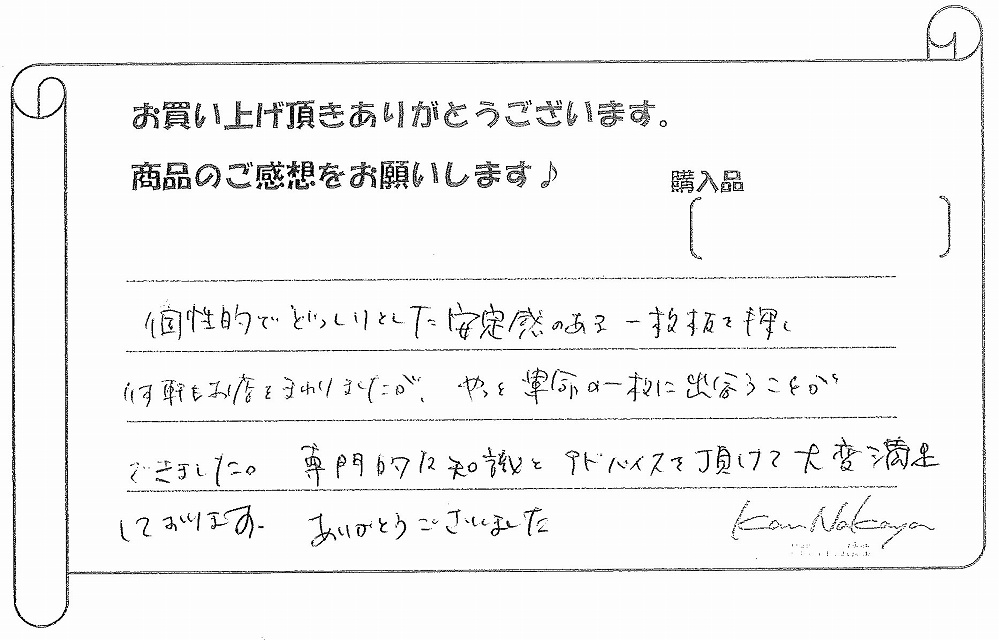 お買い上げ頂きありがとうございます。
商品のご感想をお願いします♪
購入品
個性的でどっしりとした安定感のある一枚板を探し
何軒もお店をまわりましたが、やっと運命の一枚に出会うことが
できました。専門的な知識とアドバイスを頂けて大変満足
しております。ありがとうございました
Kan Nakaya